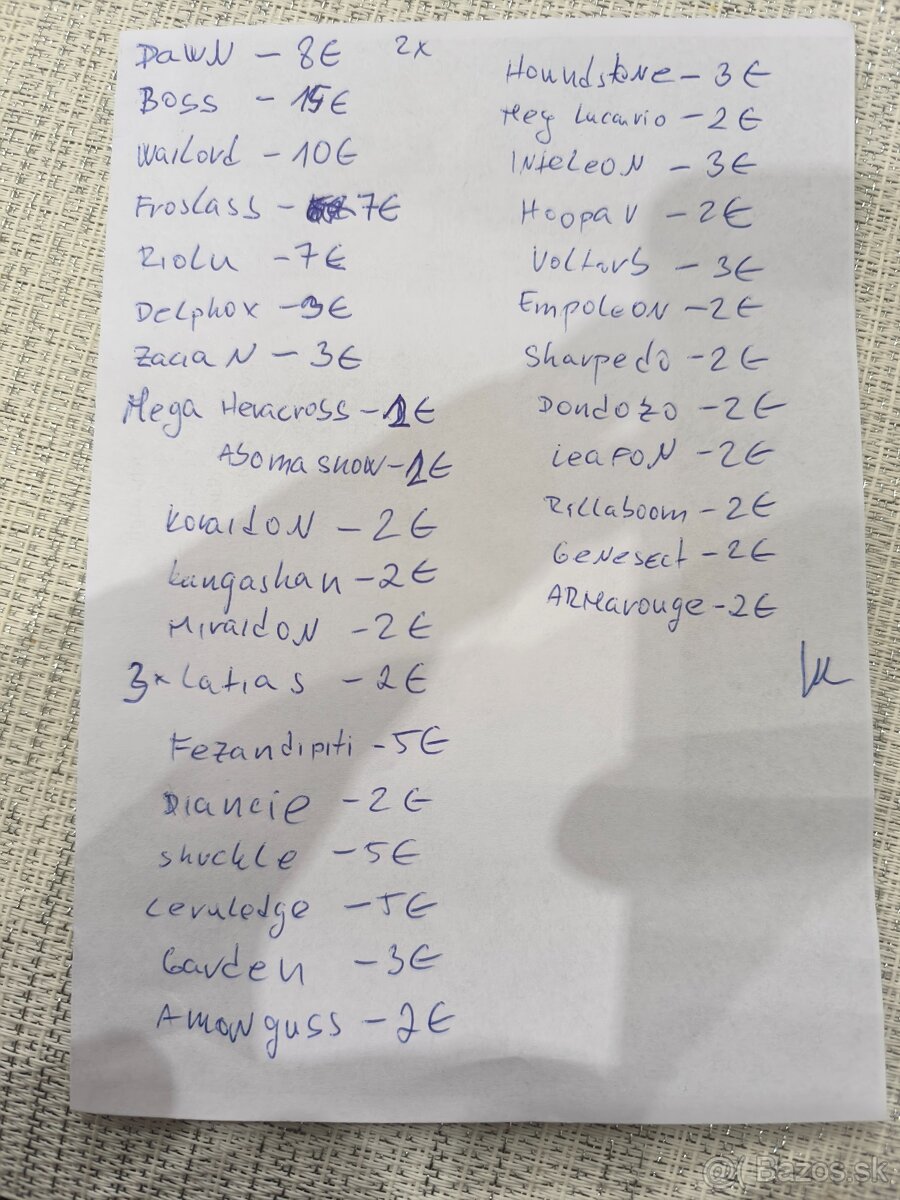 DawN - 8€ 2x
Boss - 15€
Wailord - 10€
Froslass - 7€
Riolu - 7€
Delphox - 3€
Zacian - 3€
Mega Heracross - 1€
Abomasnow - 1€
KoraidoN - 2€
Kangashan - 2€
MiraidoN - 2€
3x Latias - 2€
Fezandipiti - 5€
Diancie - 2€
Shuckle - 5€
Ceruledge - 5€
Garden - 3€
Amonguss - 2€
Houndstone - 3€
Meg Lucario - 2€
INteleoN - 3€
Hoopa V - 2€
Voltorb - 3€
EmpoleoN - 2€
Sharpedo - 2€
Dondozo - 2€
LeafoN - 2€
Rillaboom - 2€
GeNesect - 2€
ARMarouge - 2€
@( Bazos.sk